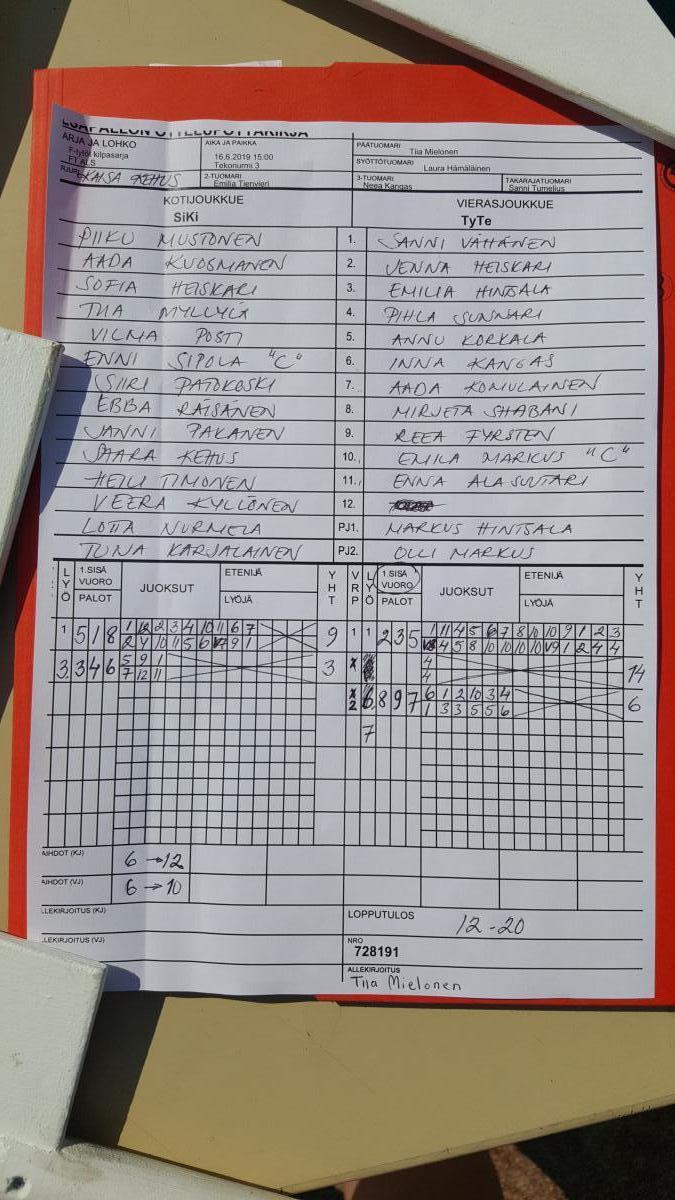 PESÄPALLON OTTELUPÖYTÄKIRJA
SARJA JA LOHKO
F-tytöt kilpasarja
F1 ALS
AIKA JA PAIKKA
16.6.2019 15:00
Tekonurmi 3
PÄÄTUOMARI
Tiia Mielonen
SYÖTTÖTUOMARI
Laura Hämäläinen
KIRJURI
KAISA KEHUS
2-TUOMARI
Emilia Tienvieri
3-TUOMARI
Neea Kangas
TAKARAJATUOMARI
Sanni Tumelius
KOTIJOUKKUE
SiKi
VIERASJOUKKUE
TyTe
PIIKU MUSTONEN 1. SANNI VÄHÄNEN
AADA KUOSMANEN 2. JENNA HEISKARI
SOFIA HEISKARI 3. EMILIA HINTSALA
TIIA MYLLYLÄ 4. PIHLA SUNNARI
VILMA POSTI 5. ANNU KORKALA
ENNI SIPOLA "C" 6. INNA KANGAS
SIIRI PATOKOSKI 7. AADA KOMULAINEN
EBBA RÄISÄNEN 8. MIRJETA SHABANI
JANNI PAKANEN 9. REEA FYRSTEN
SAARA KEHUS 10. EMILA MARKUS "C"
HEILI TIMONEN 11. ENNA ALASUUTARI
VEERA KYLLÖNEN 12.
LOTTA NURMELA PJ1. MARKUS HINTSALA
TUNA KARJALAINEN PJ2. OLLI MARKUS
LYÖ 1.SISÄ VUORO PALOT JUOKSUT ETENIJÄ LYÖJÄ YHT VRP LYÖ 1.SISÄ VUORO PALOT JUOKSUT ETENIJÄ LYÖJÄ YHT
1 5 1 8 1 12 2 3 4 10 11 6 7 9 1 1 2 3 5 1 11 4 5 6 7 8 10 10 9 1 2 3
2 4 10 11 5 6 9 1 4 5 8 10 10 10 10 9 1 2 4 4
3. 3 4 6 5 9 1 3 x 4 14
7 12 11 4
x 6 8 9 7 6 1 2 10 3 4 6
2 1 3 3 5 5 6
7
VAIHDOT (KJ) 6 → 12
VAIHDOT (VJ) 6 → 10
ALLEKIRJOITUS (KJ)
LOPPUTULOS 12 - 20
ALLEKIRJOITUS (VJ)
NRO
728191
ALLEKIRJOITUS
Tiia Mielonen